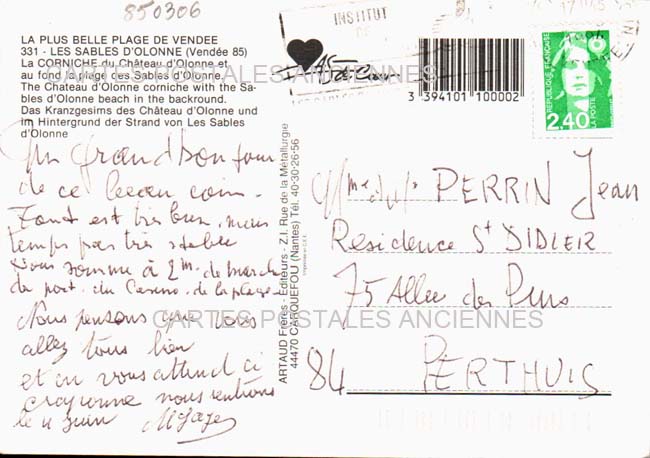 850306
LA PLUS BELLE PLAGE DE VENDEE
331 - LES SABLES D'OLONNE (Vendée 85)
La CORNICHE du Château d'Olonne et
au fond la plage des Sables d'Olonne.
The Chateau d'Olonne corniche with the Sa-
bles d'Olonne beach in the backround.
Das Kranzgesims des Château d'Olonne und
im Hintergrund der Strand von Les Sables
d'Olonne
INSTITUT
3 394101 100002
REPUBLIQUE FRANÇAISE
LA POSTE
2,40
CARTES POSTALES ANCIENNES
Un grand bonjour
de ce beau coin.
Tout est très bien, mais
temps pas très stable
Nous somme à 2 m. de marche
du port. du Casino. de la plage
Nous pensons que vous
allez tous bien
et on vous attend ci
nous rentrons
le 11 Juin
ARTAUD Frères - Editeurs - Z.I. Rue de la Métallurgie
44470 CARQUEFOU (Nantes) Tél. 40-30-26-56
PERRIN Jean
Residence St DIDIER
75 Allee des Pins
84 PERTHUIS
CARTES POSTALES ANCIENNES